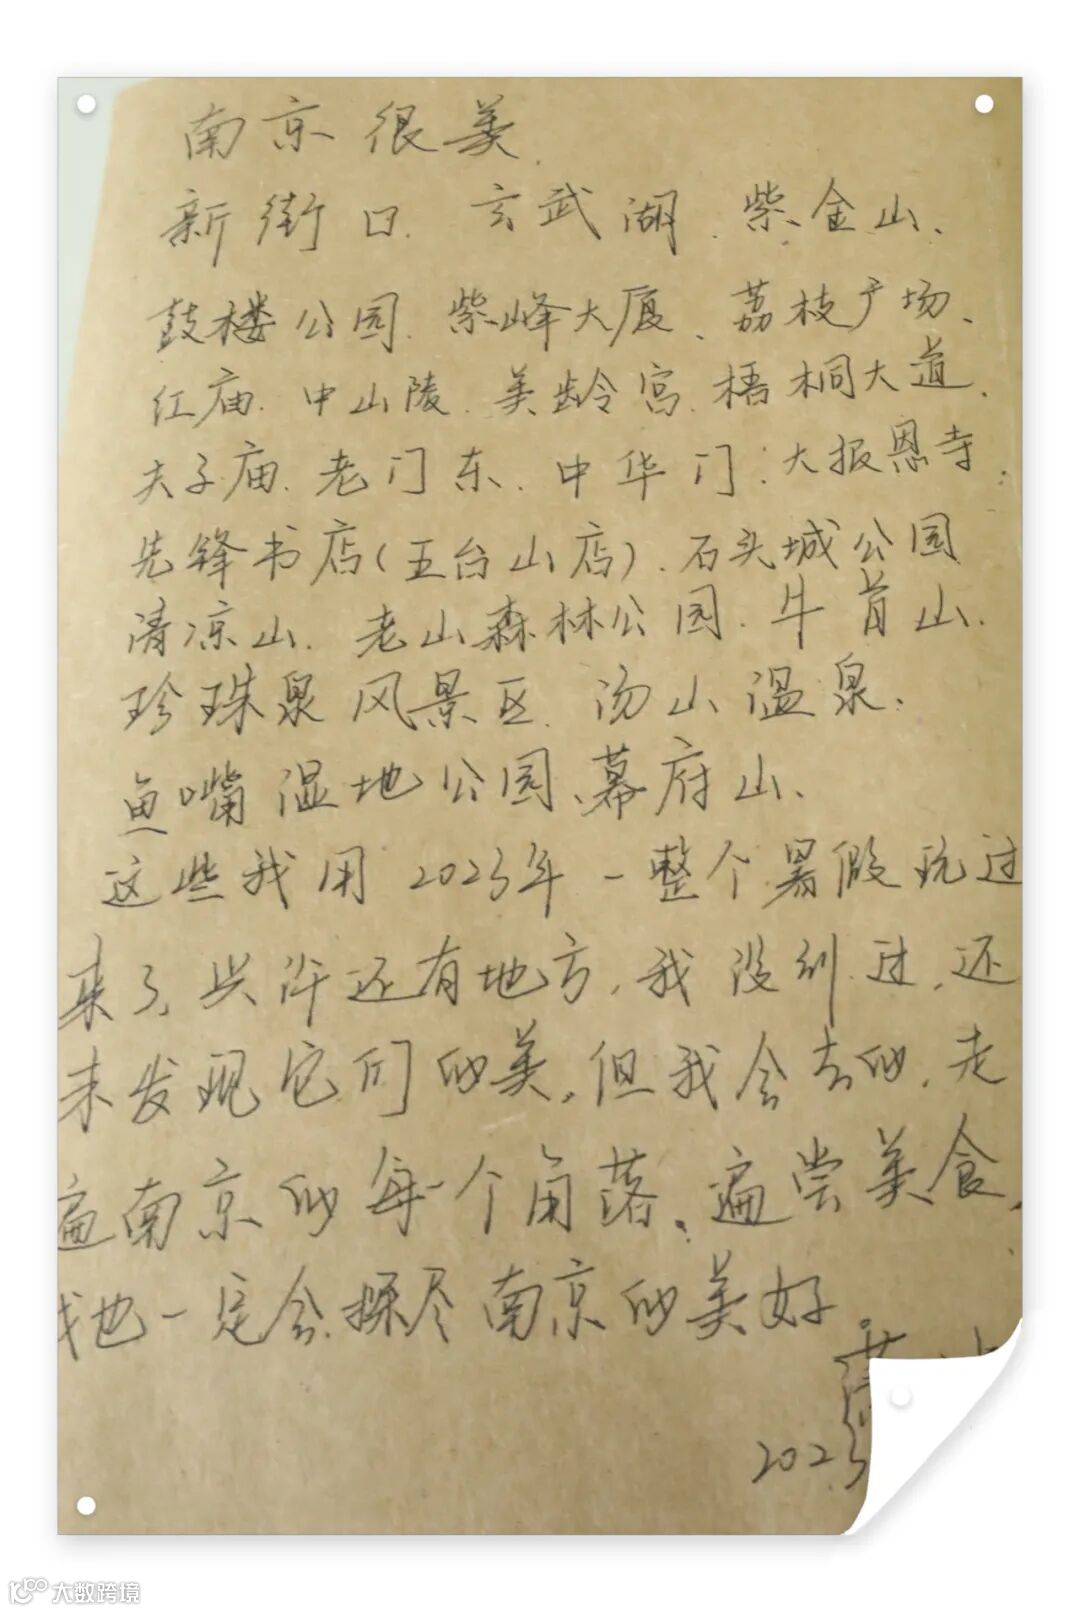 南京很美.
新街口. 玄武湖. 紫金山、
鼓楼公园. 紫峰大厦、荔枝广场、
红庙. 中山陵. 美龄宫. 梧桐大道.
夫子庙. 老门东. 中华门. 大报恩寺.
先锋书店(五台山店). 石头城公园
清凉山. 老山森林公园. 牛首山.
珍珠泉风景区. 汤山温泉.
鱼嘴湿地公园、幕府山、
这些我用2023年一整个暑假玩过
来了, 兴许还有地方, 我没到过, 还
未发现它们的美, 但我会去的, 走
遍南京的每一个角落, 遍尝美食,
我也一定会探尽南京的美好。
2023
大数跨境